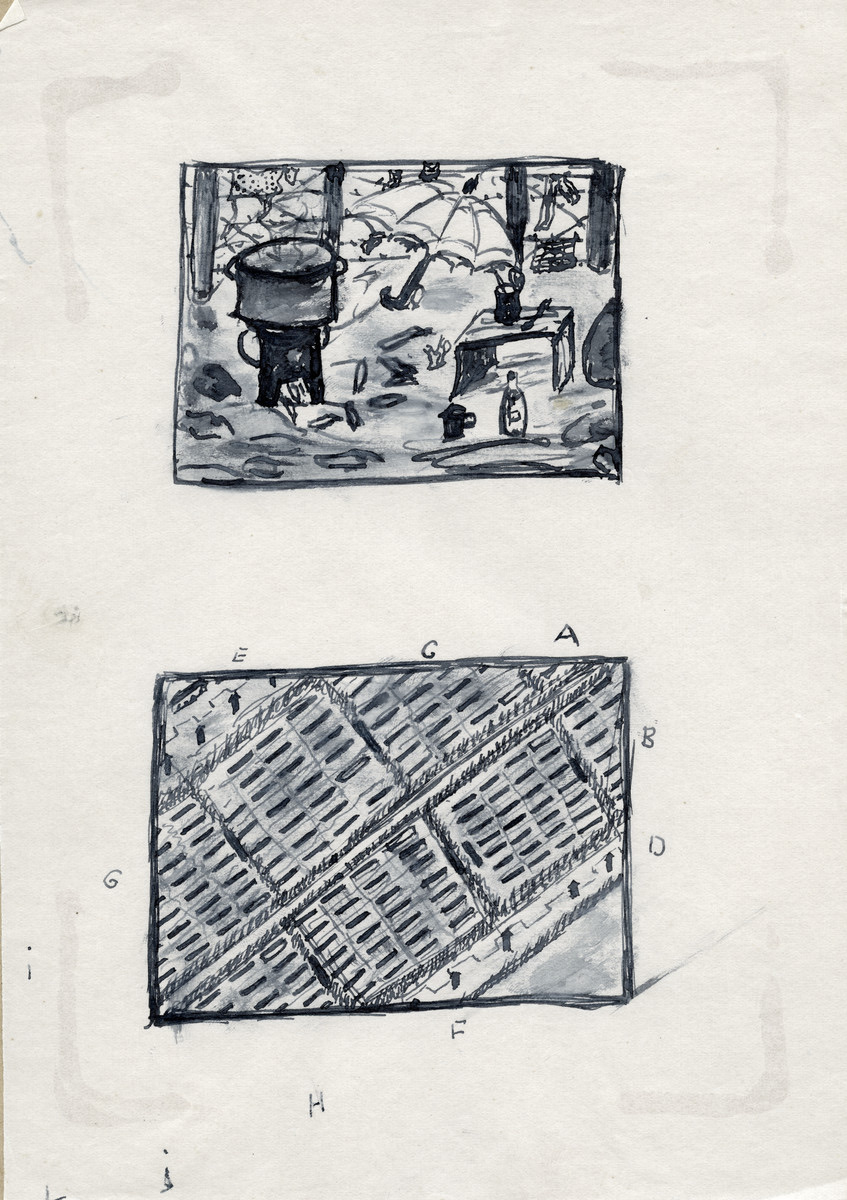 E C A
B
D
G
i
F
H
j